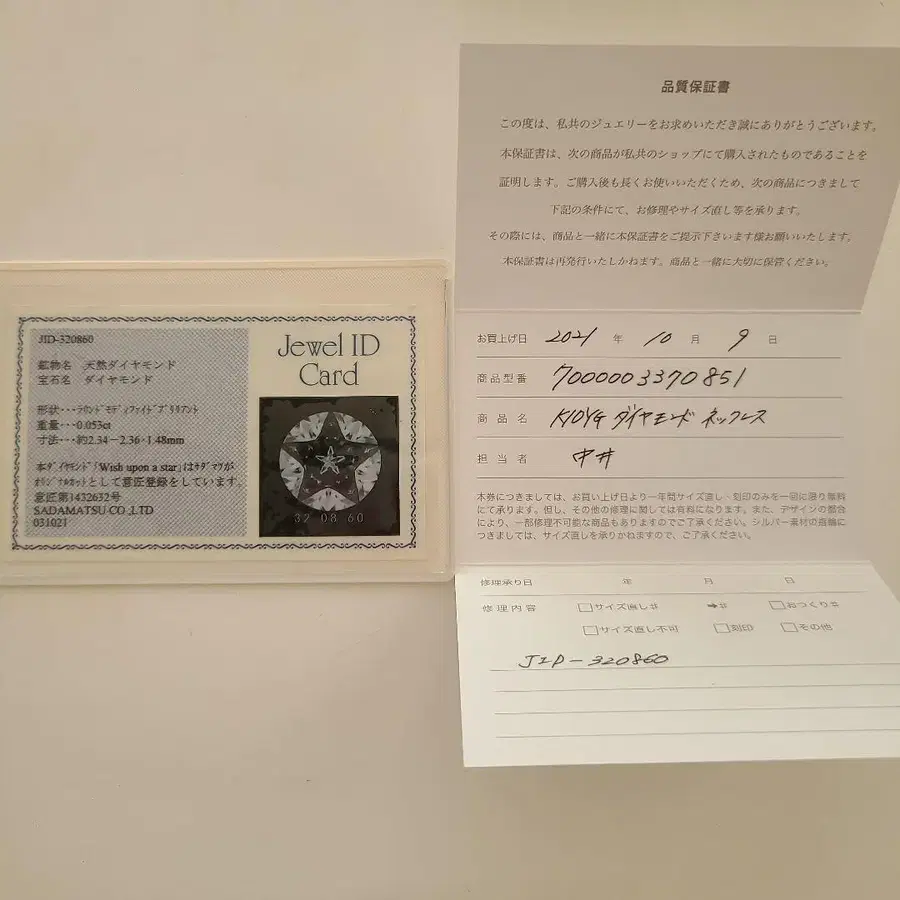 JID-320860
鉱物名 天然ダイヤモンド
宝石名 ダイヤモンド
形状・・・ラウンドモディファイドブリリアント
重量・・・0.053ct
寸法・・・約2.34－2.36×1.48mm
本ダイヤモンド「Wish upon a star」はサダマツが
オリジナルカットとして意匠登録をしています。
意匠第1432632号
SADAMATSU CO.,LTD
031021
Jewel ID
Card
32 08 60
品質保証書
この度は、私共のジュエリーをお求めいただき誠にありがとうございます。
本保証書は、次の商品が私共のショップにて購入されたものであることを
証明します。ご購入後も長くお使いいただくため、次の商品につきまして
下記の条件にて、お修理やサイズ直し等を承ります。
その際には、商品と一緒に本保証書をご提示下さいます様お願いいたします。
本保証書は再発行いたしかねます。商品と一緒に大切に保管ください。
お買上げ日 2021 年 10 月 9 日
商品型番 7000003370851
商品名 K10YG ダイヤモンド ネックレス
担当者 中井
本券につきましては、お買い上げ日より一年間サイズ直し・刻印のみを一回に限り無料
にて承ります。但し、その他の修理に関しては有料になります。また、デザインの都合
により、一部修理不可能な商品もありますのでご了承ください。シルバー素材の指輪に
つきましては、サイズ直しを承りかねますので、ご了承ください。
修理承り日 年 月 日
修理内容 □サイズ直し# ➡# □おつくり#
□サイズ直し不可 □刻印 □その他
JID-320860